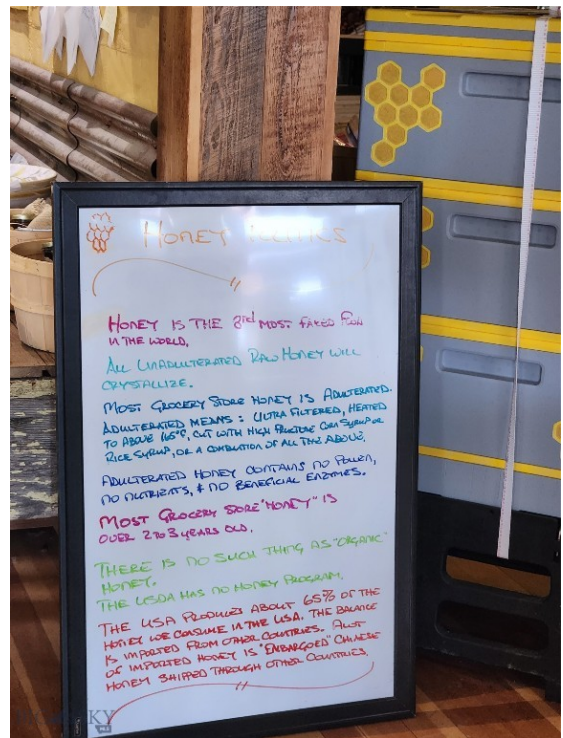 HONEY
HONEY IS THE 3rd MOST FAKED FOOD
IN THE WORLD.
ALL UNADULTERATED RAW HONEY WILL
CRYSTALLIZE.
MOST GROCERY STORE HONEY IS ADULTERATED.
ADULTERATED MEANS: ULTRA FILTERED, HEATED
TO ABOVE 165°F, CUT WITH HIGH FRUCTOSE CORN SYRUP OR
RICE SYRUP, OR A COMBINATION OF ALL THE ABOVE.
ADULTERATED HONEY CONTAINS NO POLLEN,
NO NUTRIENTS, & NO BENEFICIAL ENZYMES.
MOST GROCERY STORE "HONEY" IS
OVER 2 TO 3 YEARS OLD.
THERE IS NO SUCH THING AS "ORGANIC"
HONEY.
THE USDA HAS NO HONEY PROGRAM.
THE USA PRODUCES ABOUT 65% OF THE
HONEY WE CONSUME IN THE USA. THE BALANCE
IS IMPORTED FROM OTHER COUNTRIES. ALOT
OF IMPORTED HONEY IS "EMBARGOED" CHINESE
HONEY SHIPPED THROUGH OTHER COUNTRIES.